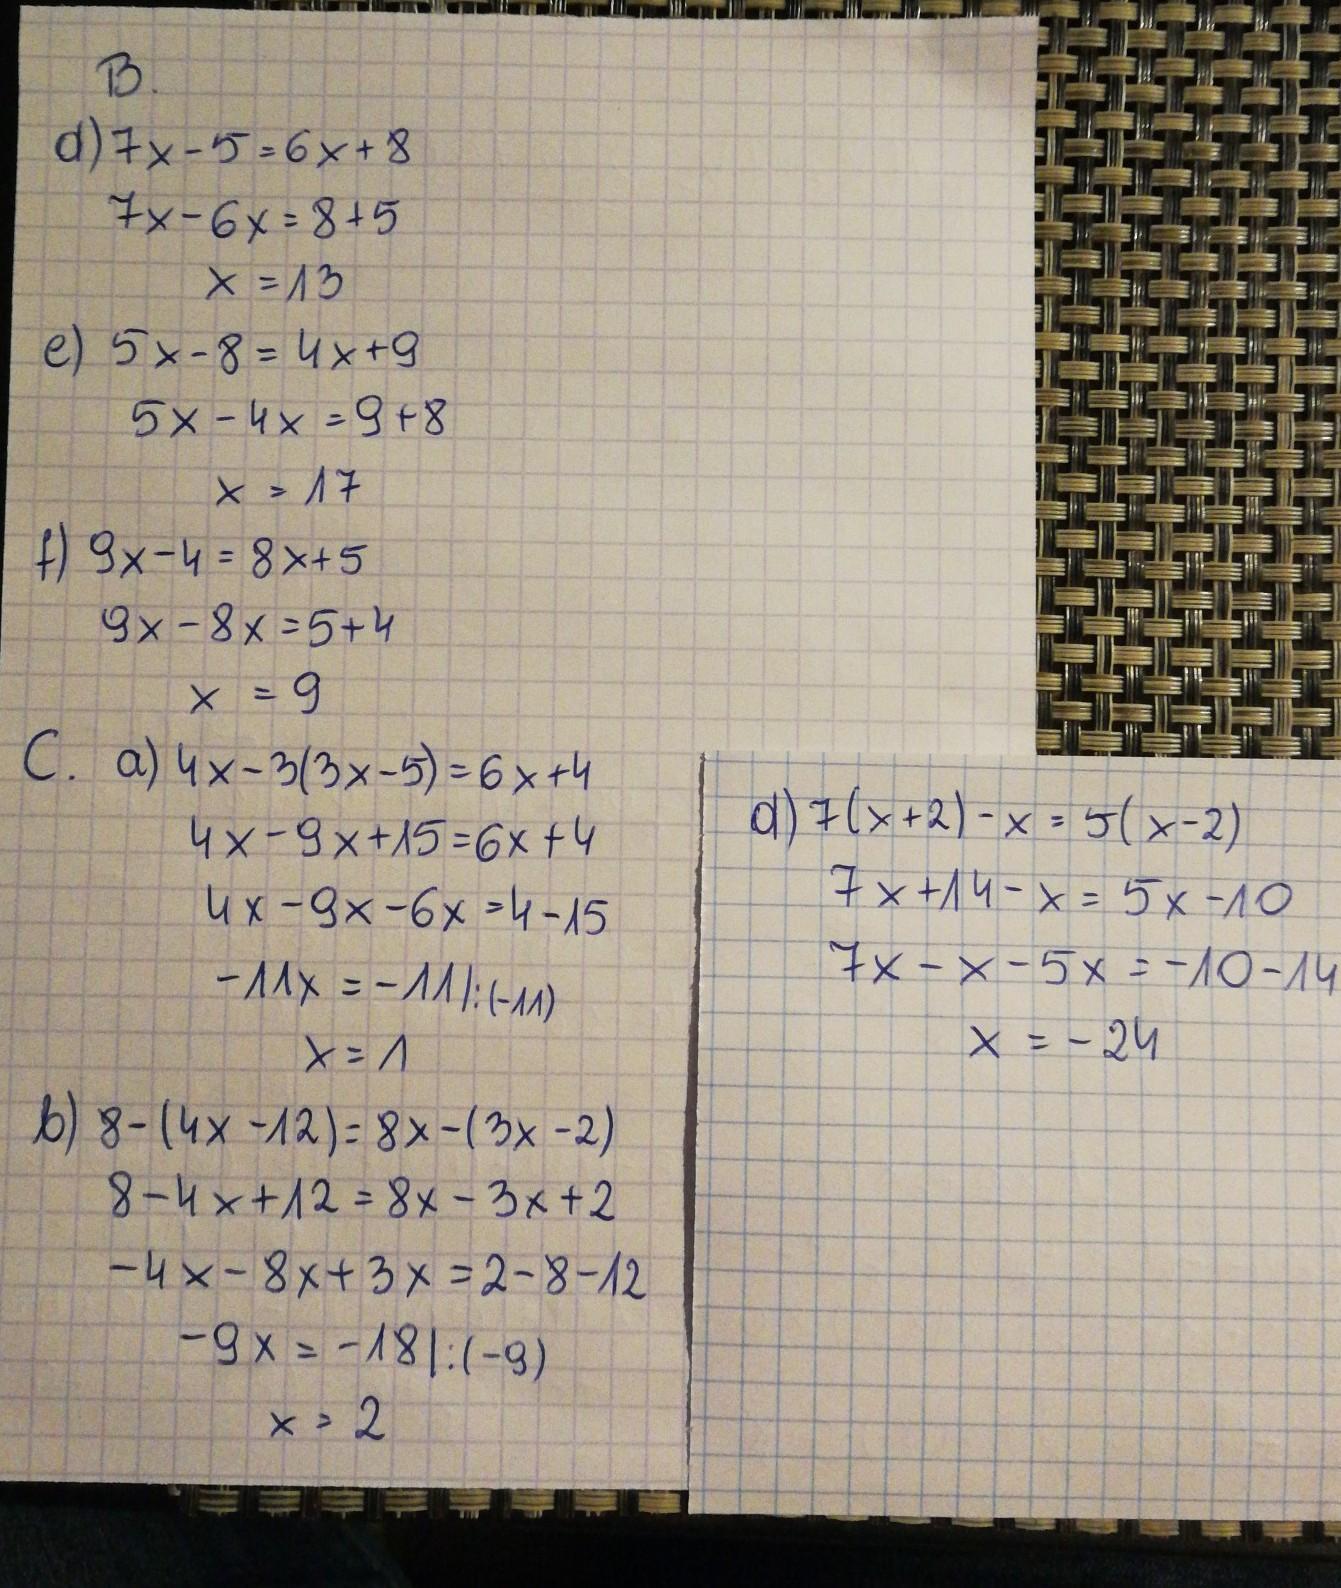 B.
d) 7x-5=6x+8
7x-6x=8+5
x=13
e) 5x-8=4x+9
5x-4x=9+8
x=17
f) 9x-4=8x+5
9x-8x=5+4
x=9
C. a) 4x-3(3x-5)=6x+4
4x-9x+15=6x+4
4x-9x-6x=4-15
-11x=-11|:(-11)
x=1
b) 8-(4x-12)=8x-(3x-2)
8-4x+12=8x-3x+2
-4x-8x+3x=2-8-12
-9x=-18|:(-9)
x=2
d) 7(x+2)-x=5(x-2)
7x+14-x=5x-10
7x-x-5x=-10-14
x=-24